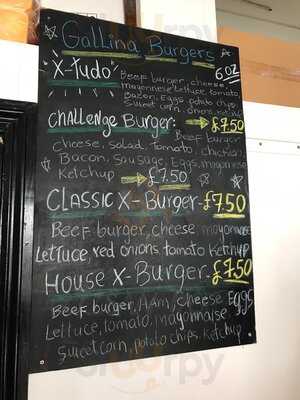 GaLLina Burgers
X-tudo
Beef burger, cheese
mayonnese Lettuce tomato
Bacon, Eggs potato chip
Sweet corn, onions
6.oz
CHALLenge Burger: £7.50
Beef Burger
cheese, salad, Tomato, chicken
Bacon, sausage, Eggs, mayonese
Ketchup £7.50
CLASSIC X-Burger- £7.50
Beef burger, cheese, mayonnaise
Lettuce, red onions, tomato Ketchup
House X-Burger. £7.50
Beef burger, Ham, cheese Eggs
Lettuce, tomato, mayonnaise
sweetcorn, potato chips, Ketchup